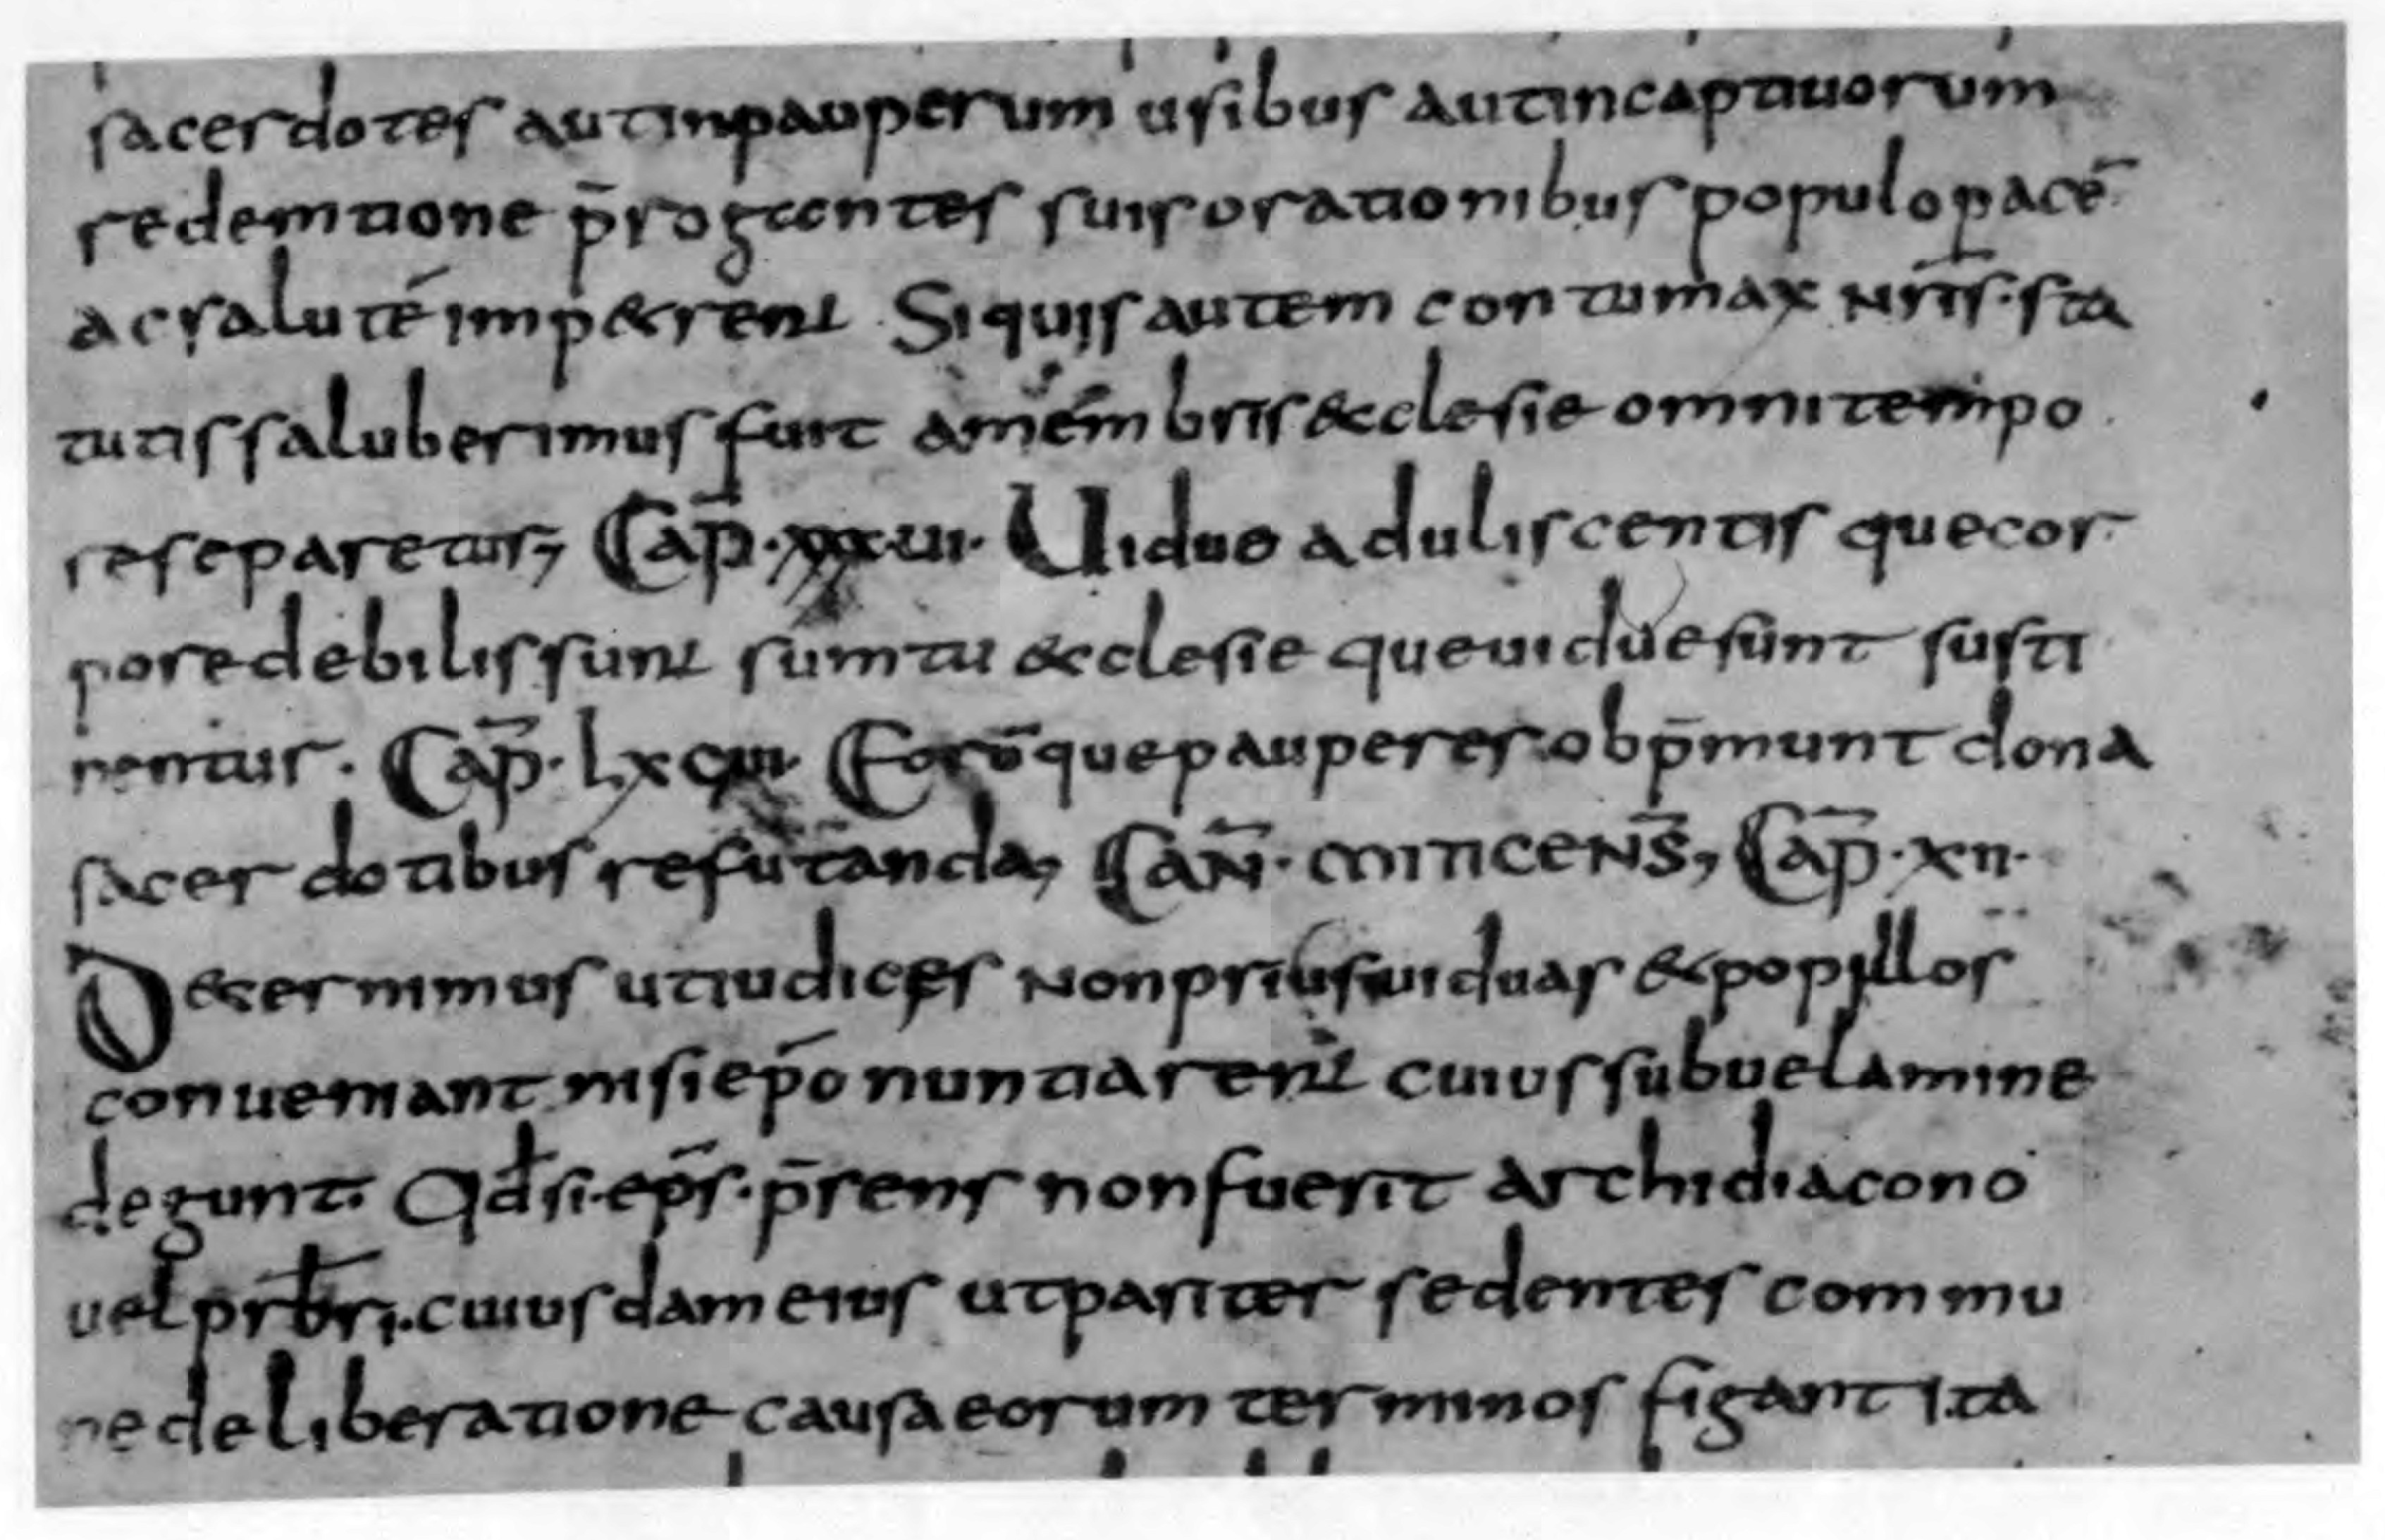 sacerdotes aut in pauperum usibus aut in captiuorum
redemtione p̄rogantes suis orationibus populo pacē
ac salutē impetrent. Si quis autem contumax nr̄is· sta
tutis saluberimus fuit a membris ecclesie omni tempo
re separetur; Cap̄· xxxui· Uiduo aduliscentis que cor
pore debilis sunt sumtu ecclesie que uidue sunt susti
nentur· Cap̄· lxcui· Eorū que pauperes obp̄munt dona
sacerdotibus refutanda; Can̄· miticens̄; Cap̄· xii·
Decernimus ut iudices non prius uiduas et popillos
conueniant nisi ep̄o nuntiarent cuius sub uelamine
degunt. Qđ si· ep̄s· p̄sens non fuerit archidiacono
uel prb̄ri· cuiusdam eius ut pariter sedentes commu
ne deliberatione causa eorum terminos figant ita